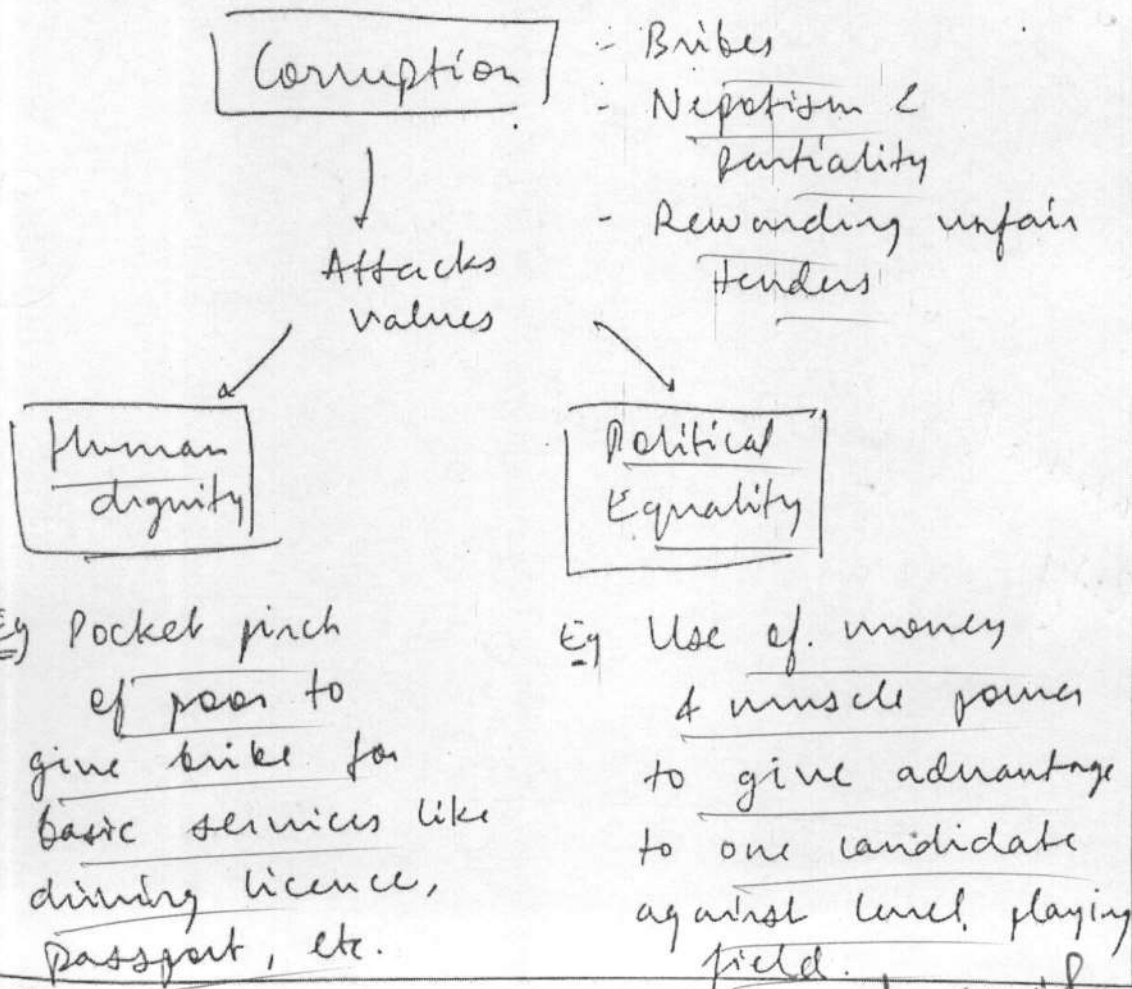 Corruption
- Bribes
- Nepotism &
partiality
- Rewarding unfair
tenders
Attacks
values
Human
dignity
Eg Pocket pinch
of poor to
give bribe for
basic services like
driving licence,
passport, etc.
Political
Equality
Eg Use of money
& muscle power
to give advantage
to one candidate
against level playing
field.